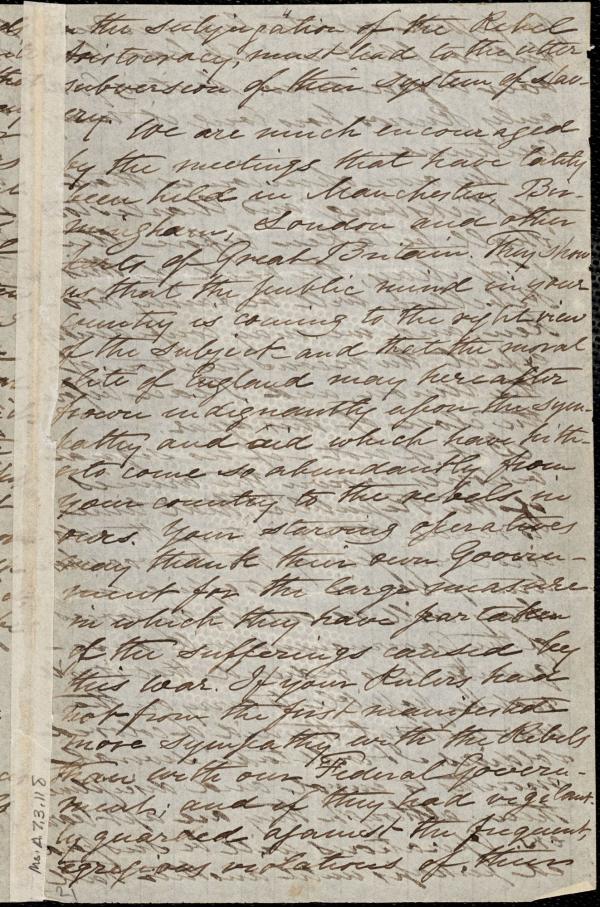 in the subjugation of the Rebel
Aristocracy, must lead to the utter
subversion of their system of slav-
ery. We are much encouraged
by the meetings that have lately
been held in Manchester, Bir-
mingham, London and other
parts of Great Britain. They show
us that the public mind in your
country is coming to the right view
of the subject and that the moral
elite of England may hereafter
frown indignantly upon the sym-
pathy and aid which have hith-
erto come so abundantly from
your country to the rebels in
ours. Your starving operatives
may thank their own Govern-
ment for the large measure
in which they have partaken
of the sufferings caused by
this war. If your Rulers had
not from the first manifested
more sympathy with the Rebels
than with our Federal Govern-
ment; and if they had vigilant-
ly guarded against the frequent,
egregious violations of their
Ms. A. 7.3.118